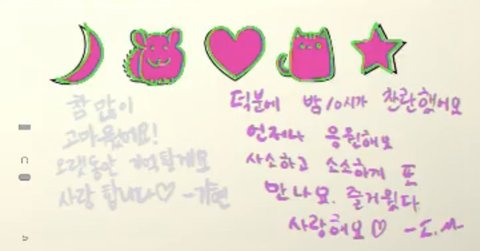 참 많이
고마웠어요!
오랫동안 기억할게요
사랑합니다♡ -기현
덕분에 밤 10시가 찬란했어요
언제나 응원해요
사소하고 소소하게 또
만나요. 즐거웠다
사랑해요♡ -I.M